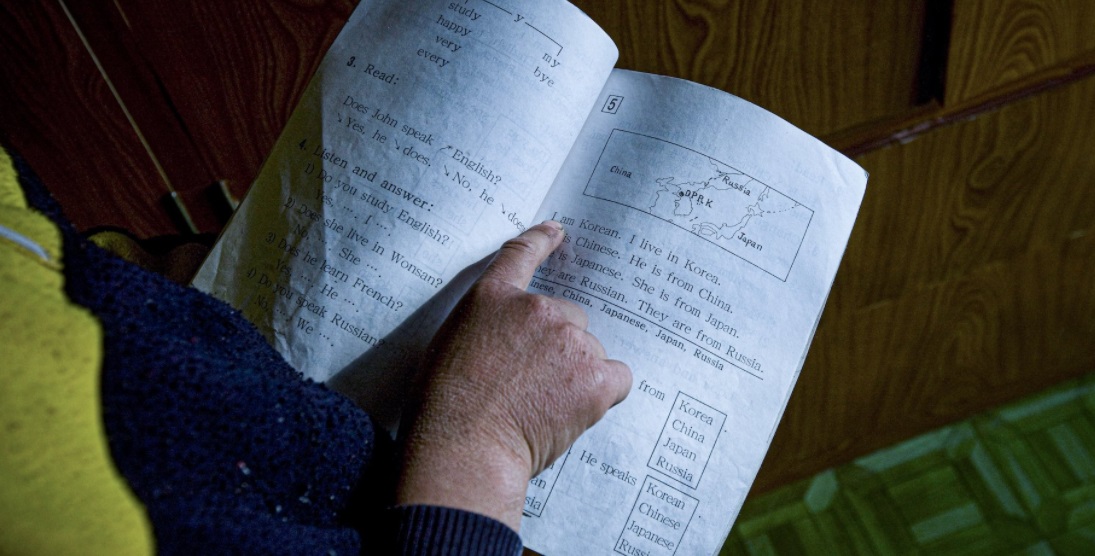 study
happy
very
every
y
my
bye
3. Read:
Does John speak English?
Yes, he does. No, he
4. Listen and answer:
1) Do you study English?
Yes, ... I ....
Does she live in Wonsan?
No, ... She ...
3) Does he learn French?
Yes ... He ...
Do you speak Russian?
No, ... We ....
5
China
Russia
D.P.R.K
Japan
I am Korean. I live in Korea.
is Chinese. He is from China.
is Japanese. She is from Japan.
are Russian. They are from Russia.
China, Japanese, Japan, Russia
from
Korea
China
Japan
Russia
He speaks
Korean
Chinese
Japanese